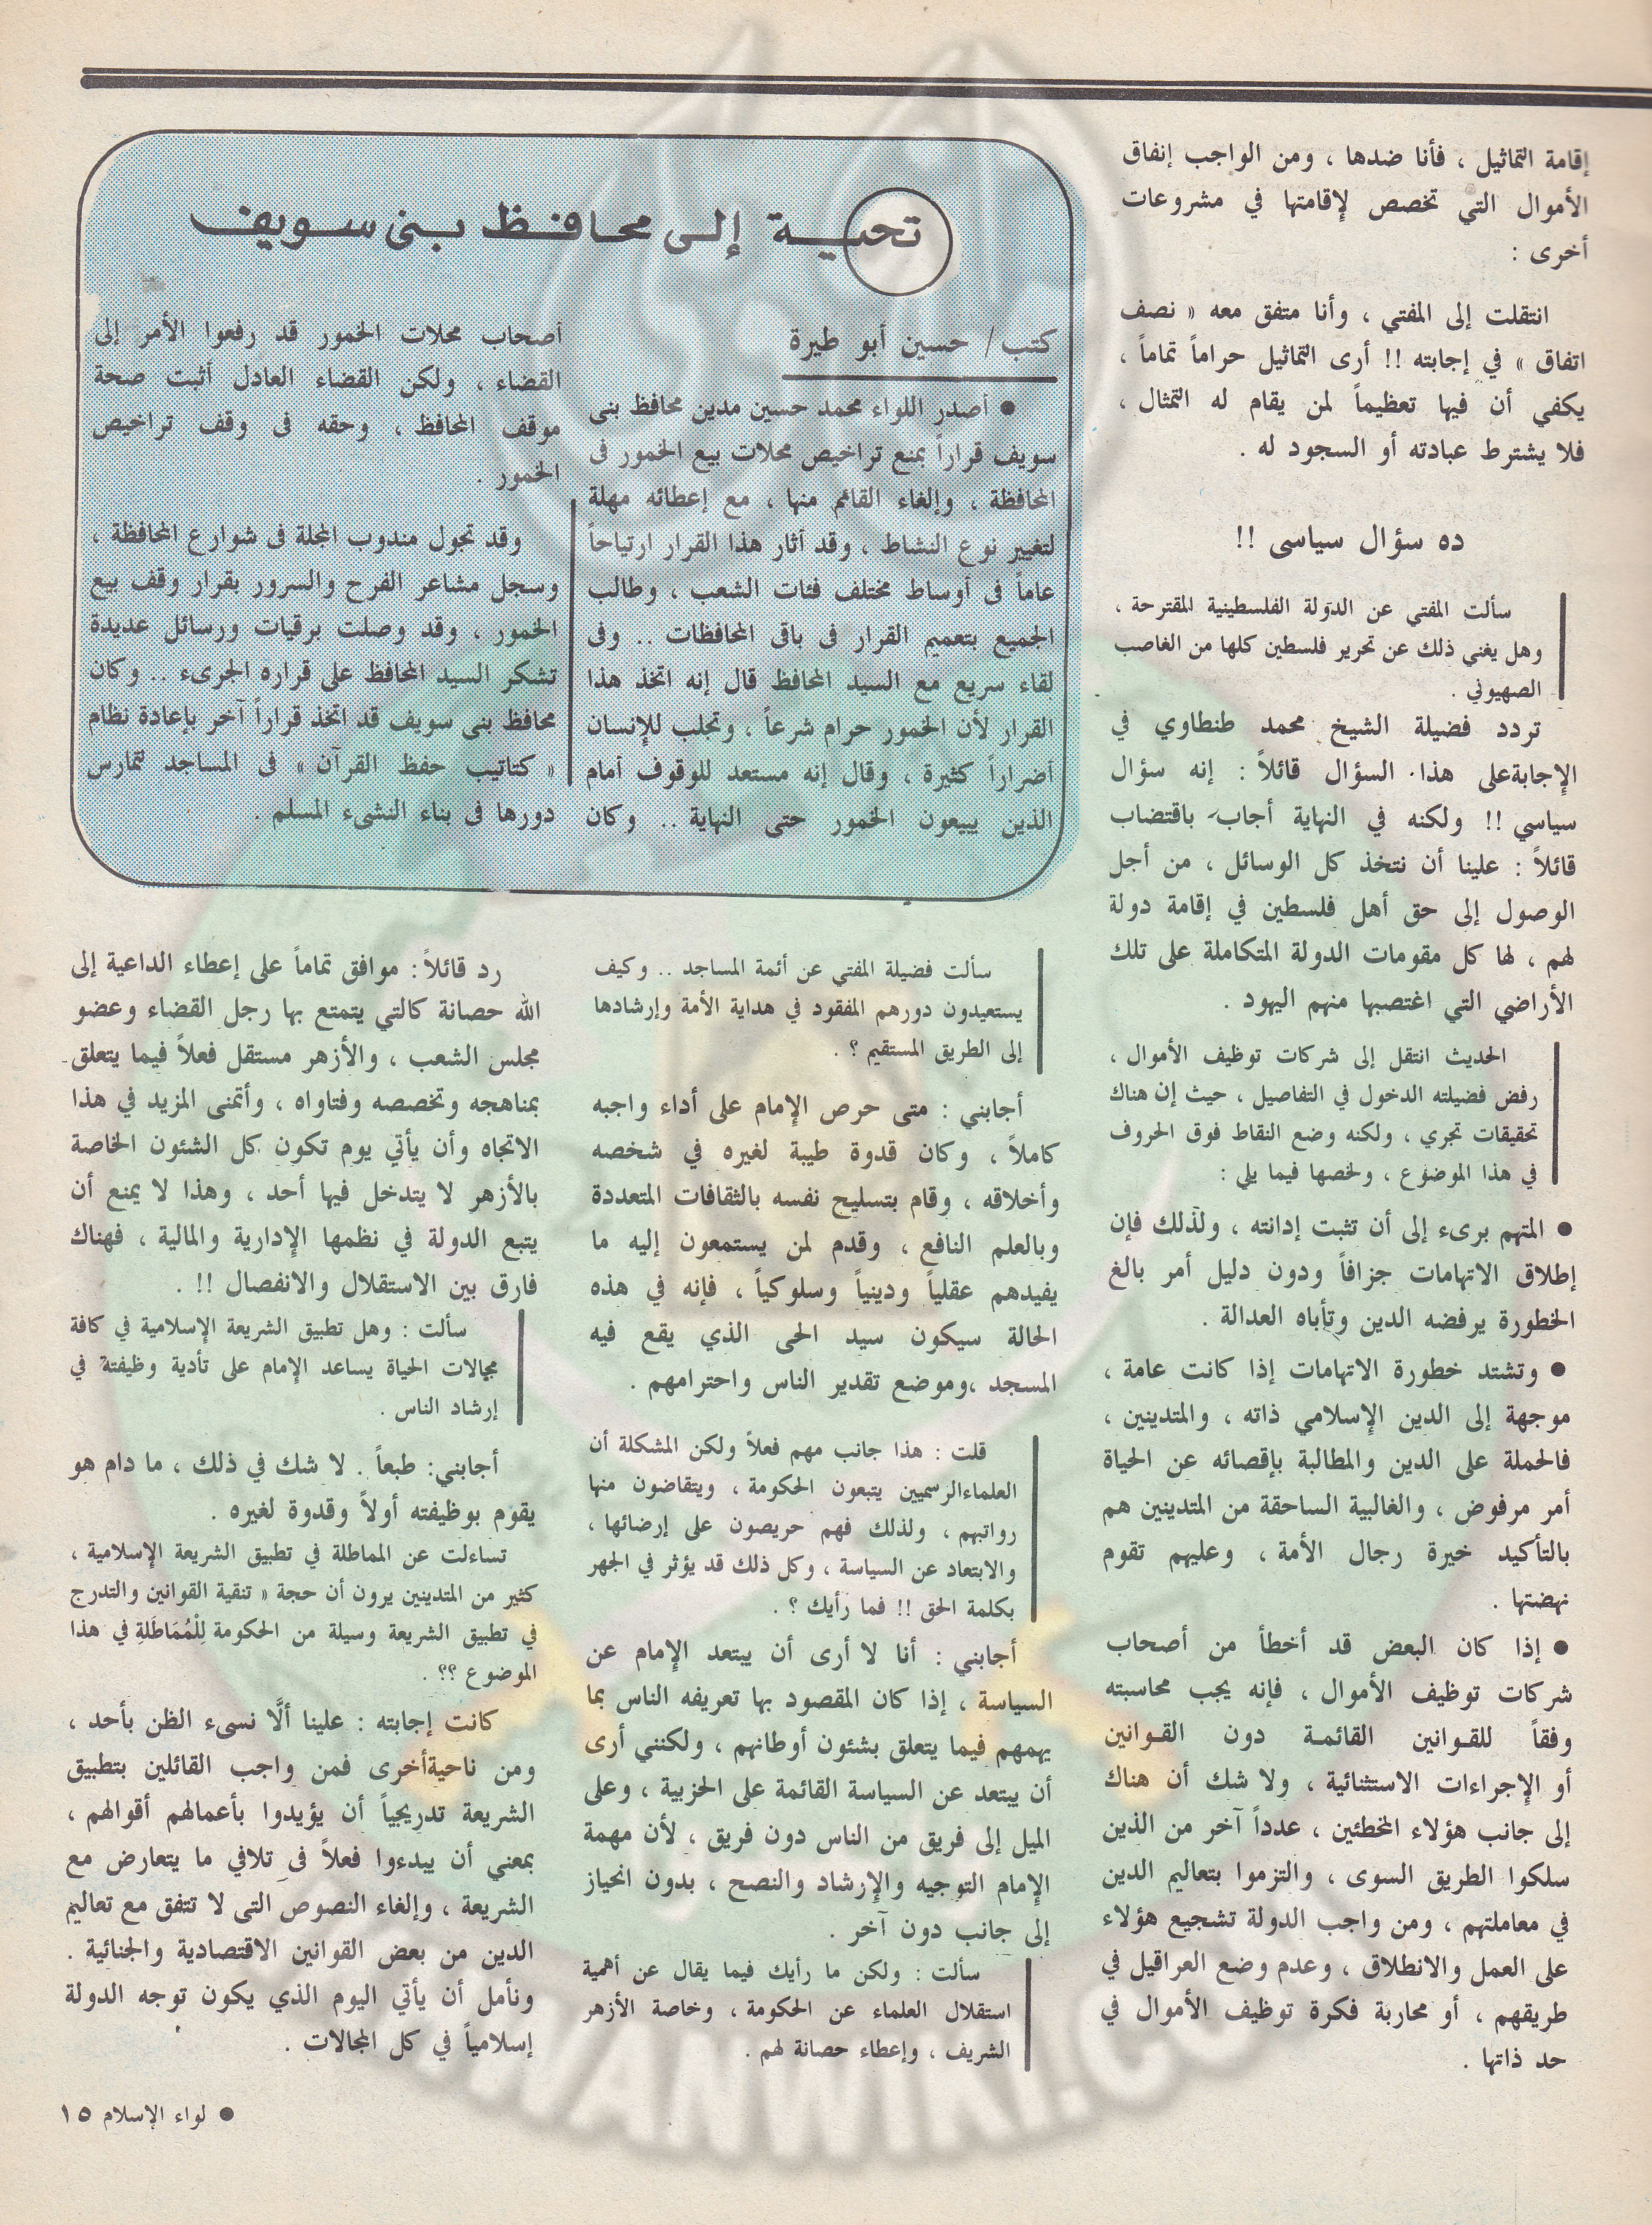 إقامة التماثيل ، فأنا ضدها ، ومن الواجب إنفاق
الأموال التي تخصص لإقامتها في مشروعات
أخرى :
انتقلت إلى المفتي ، وأنا متفق معه « نصف
اتفاق » في إجابته !! أرى التماثيل حراماً تماماً ،
يكفي أن فيها تعظيماً لمن يقام له التمثال ،
فلا يشترط عبادته أو السجود له .
ده سؤال سياسى !!
سألت المفتي عن الدولة الفلسطينية المقترحة ،
وهل يغني ذلك عن تحرير فلسطين كلها من الغاصب
الصهيوني .
تردد فضيلة الشيخ محمد طنطاوي في
الإجابةعلى هذا السؤال قائلاً : إنه سؤال
سياسي !! ولكنه في النهاية أجاب باقتضاب
قائلاً : علينا أن نتخذ كل الوسائل ، من أجل
الوصول إلى حق أهل فلسطين في إقامة دولة
لهم ، لها كل مقومات الدولة المتكاملة على تلك
الأراضي التي اغتصبها منهم اليهود .
الحديث انتقل إلى شركات توظيف الأموال ،
رفض فضيلته الدخول في التفاصيل ، حيث إن هناك
تحقيقات تجري ، ولكنه وضع النقاط فوق الحروف
في هذا الموضوع ، ولخصها فيما يلي :
● المتهم برىء إلى أن تثبت إدانته ، ولذلك فإن
إطلاق الاتهامات جزافاً ودون دليل أمر بالغ
الخطورة يرفضه الدين وتأباه العدالة .
● وتشتد خطورة الاتهامات إذا كانت عامة ،
موجهة إلى الدين الإسلامي ذاته ، والمتدينين ،
فالحملة على الدين والمطالبة بإقصائه عن الحياة
أمر مرفوض ، والغالبية الساحقة من المتدينين هم
بالتأكيد خيرة رجال الأمة ، وعليهم تقوم
نهضتها .
● إذا كان البعض قد أخطأ من أصحاب
شركات توظيف الأموال ، فإنه يجب محاسبته
وفقاً للقوانين القائمة دون القوانين
أو الإجراءات الاستثنائية ، ولا شك أن هناك
إلى جانب هؤلاء المخطئين ، عدداً آخر من الذين
سلكوا الطريق السوى ، والتزموا بتعاليم الدين
في معاملتهم ، ومن واجب الدولة تشجيع هؤلاء
على العمل والانطلاق ، وعدم وضع العراقيل في
طريقهم ، أو محاربة فكرة توظيف الأموال في
حد ذاتها .
تحية إلى محافظ بنى سويف
كتب / حسين أبو طيرة
● أصدر اللواء محمد حسين مدين محافظ بنى
سويف قراراً بمنع تراخيص محلات بيع الخمور فى
المحافظة ، وإلغاء القائم منها ، مع إعطائه مهلة
لتغيير نوع النشاط ، وقد أثار هذا القرار ارتياحاً
عاماً فى أوساط مختلف فئات الشعب ، وطالب
الجميع بتعميم القرار فى باقى المحافظات .. وفى
لقاء سريع مع السيد المحافظ قال إنه اتخذ هذا
القرار لأن الخمور حرام شرعاً ، وتجلب للإنسان
أضراراً كثيرة ، وقال إنه مستعد للوقوف أمام
الذين يبيعون الخمور حتى النهاية .. وكان
أصحاب محلات الخمور قد رفعوا الأمر إلى
القضاء ، ولكن القضاء العادل أثبت صحة
موقف المحافظ ، وحقه فى وقف تراخيص
الخمور .
وقد تجول مندوب المجلة فى شوارع المحافظة ،
وسجل مشاعر الفرح والسرور بقرار وقف بيع
الخمور ، وقد وصلت برقيات ورسائل عديدة
تشكر السيد المحافظ على قراره الجرىء .. وكان
محافظ بنى سويف قد اتخذ قراراً آخر بإعادة نظام
« كتاتيب حفظ القرآن » فى المساجد لتمارس
دورها فى بناء النشىء المسلم .
سألت فضيلة المفتي عن أئمة المساجد .. وكيف
يستعيدون دورهم المفقود في هداية الأمة وإرشادها
إلى الطريق المستقيم ؟ .
أجابني : متى حرص الإمام على أداء واجبه
كاملاً ، وكان قدوة طيبة لغيره في شخصه
وأخلاقه ، وقام بتسليح نفسه بالثقافات المتعددة
وبالعلم النافع ، وقدم لمن يستمعون إليه ما
يفيدهم عقلياً ودينياً وسلوكياً ، فإنه في هذه
الحالة سيكون سيد الحى الذي يقع فيه
المسجد ،وموضع تقدير الناس واحترامهم .
قلت : هذا جانب مهم فعلاً ولكن المشكلة أن
العلماءالرسميين يتبعون الحكومة ، ويتقاضون منها
رواتبهم ، ولذلك فهم حريصون على إرضائها ،
والابتعاد عن السياسة ، وكل ذلك قد يؤثر في الجهر
بكلمة الحق !! فما رأيك ؟ .
أجابني : أنا لا أرى أن يبتعد الإمام عن
السياسة ، إذا كان المقصود بها تعريفه الناس بما
يهمهم فيما يتعلق بشئون أوطانهم ، ولكنني أرى
أن يبتعد عن السياسة القائمة على الحزبية ، وعلى
الميل إلى فريق من الناس دون فريق ، لأن مهمة
الإمام التوجيه والإرشاد والنصح ، بدون انحياز
إلى جانب دون آخر .
سألت : ولكن ما رأيك فيما يقال عن أهمية
استقلال العلماء عن الحكومة ، وخاصة الأزهر
الشريف ، وإعطاء حصانة لهم .
رد قائلاً : موافق تماماً على إعطاء الداعية إلى
الله حصانة كالتي يتمتع بها رجل القضاء وعضو
مجلس الشعب ، والأزهر مستقل فعلاً فيما يتعلق
بمناهجه وتخصصه وفتاواه ، وأتمنى المزيد في هذا
الاتجاه وأن يأتي يوم تكون كل الشئون الخاصة
بالأزهر لا يتدخل فيها أحد ، وهذا لا يمنع أن
يتبع الدولة في نظمها الإدارية والمالية ، فهناك
فارق بين الاستقلال والانفصال !! .
سألت : وهل تطبيق الشريعة الإسلامية في كافة
مجالات الحياة يساعد الإمام على تأدية وظيفتة في
إرشاد الناس .
أجابني: طبعاً . لا شك في ذلك ، ما دام هو
يقوم بوظيفته أولاً وقدوة لغيره .
تساءلت عن المماطلة في تطبيق الشريعة الإسلامية ،
كثير من المتدينين يرون أن حجة « تنقية القوانين والتدرج
في تطبيق الشريعة وسيلة من الحكومة لِلْمُمَاطَلَةِ في هذا
الموضوع ؟؟ .
كانت إجابته : علينا ألَّا نسىء الظن بأحد ،
ومن ناحيةأخرى فمن واجب القائلين بتطبيق
الشريعة تدريجياً أن يؤيدوا بأعمالهم أقوالهم ،
بمعني أن يبدءوا فعلاً في تلافي ما يتعارض مع
الشريعة ، وإلغاء النصوص التى لا تتفق مع تعاليم
الدين من بعض القوانين الاقتصادية والجنائية .
ونأمل أن يأتي اليوم الذي يكون توجه الدولة
إسلامياً في كل المجالات .
● لواء الإسلام ١٥